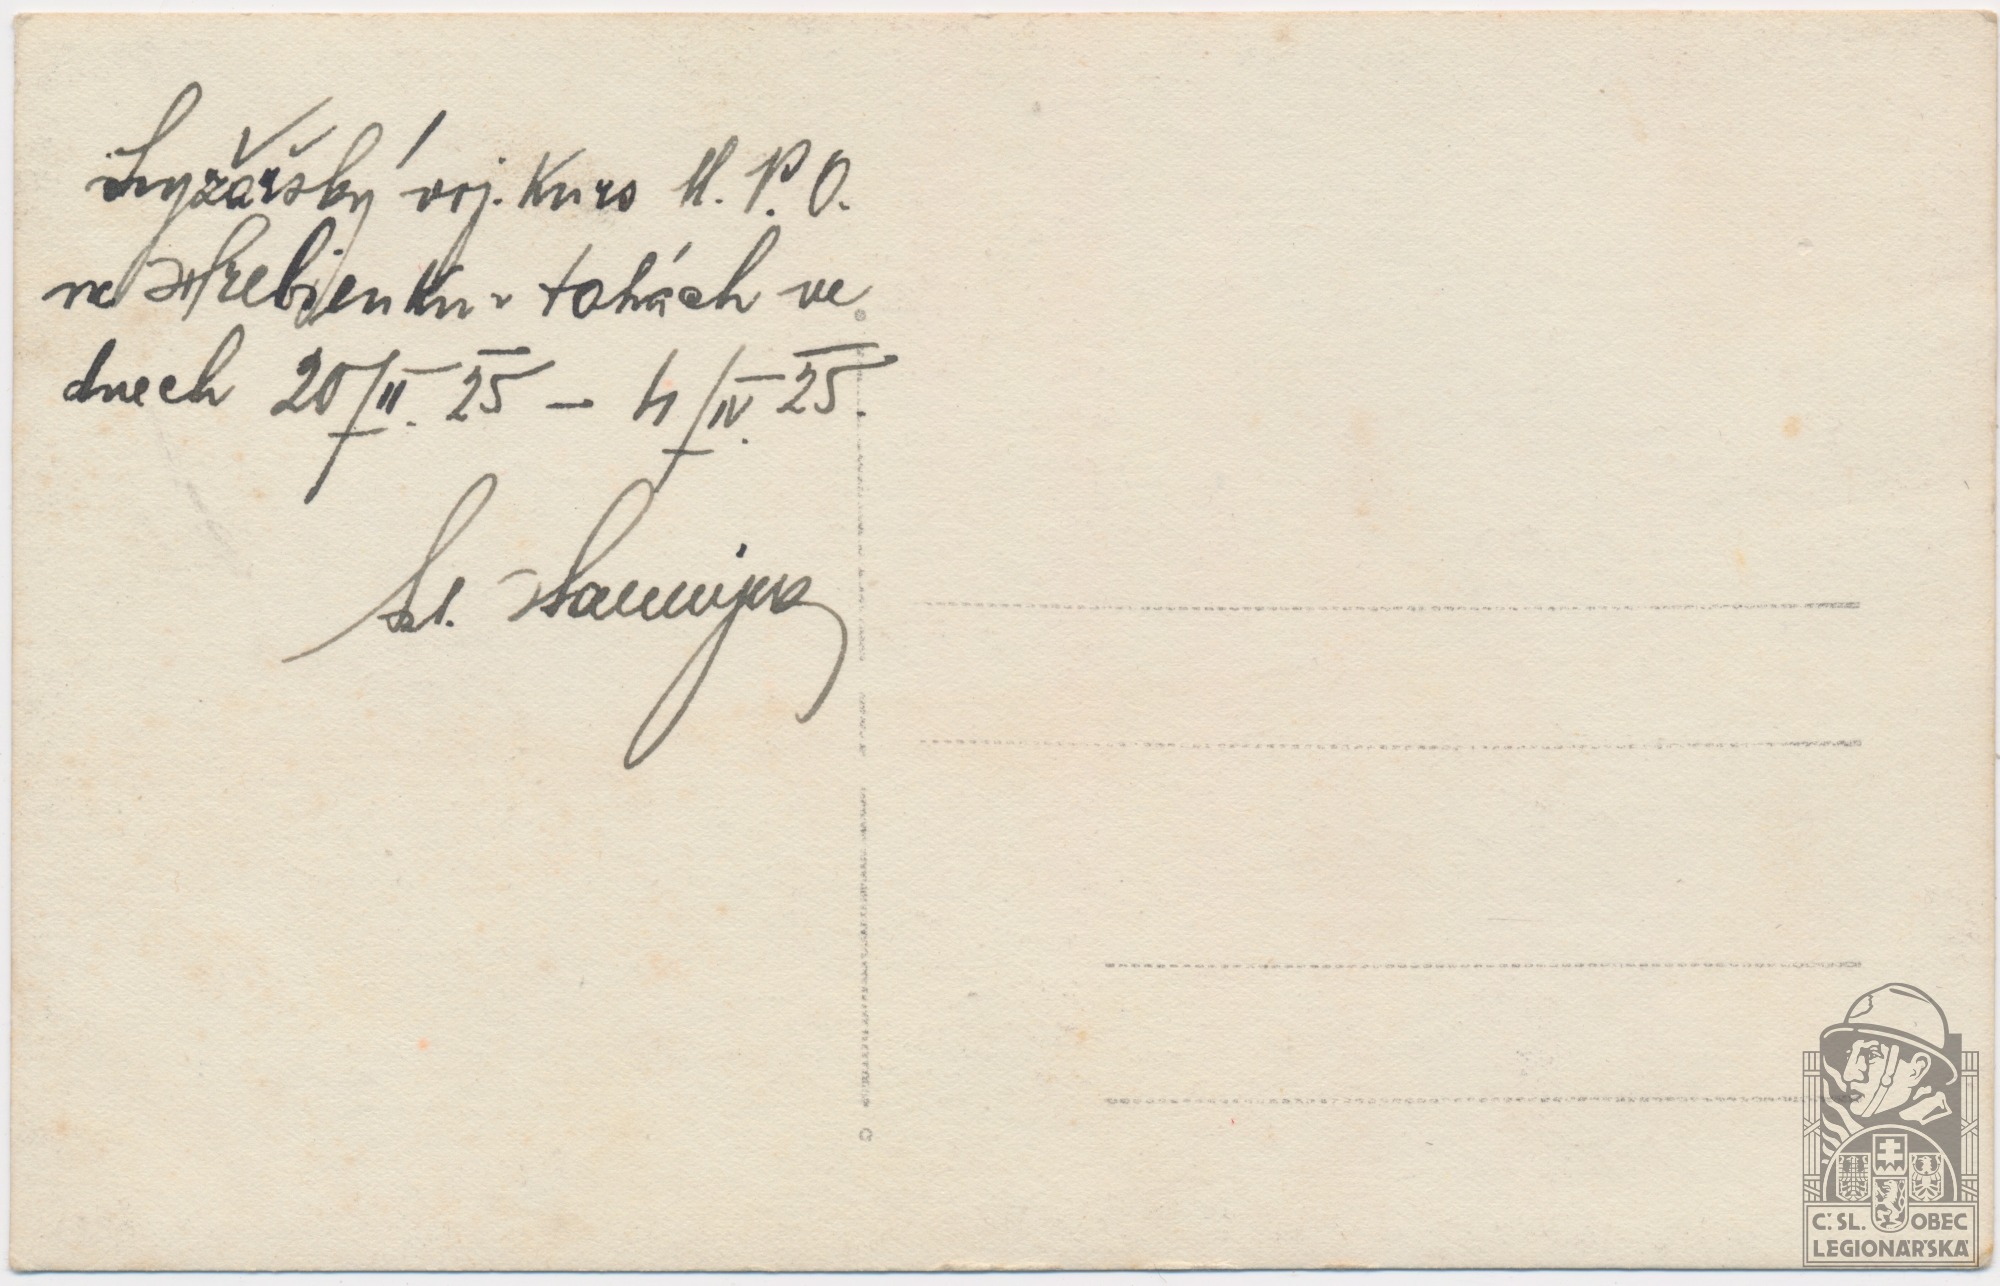 Lyžařský voj. Kurs M. P. O.
na Hrebienku v tatrách ve
dnech 20/II. 25 – 4/IV. 25.
Č.SL. OBEC
LEGIONÁŘSKÁ